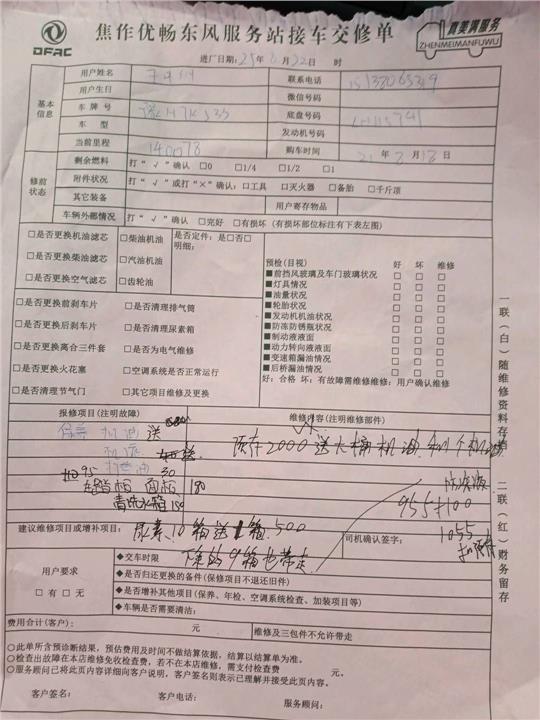 DFAC
焦作优畅东风服务站接车交修单
真美满服务
ZHENMEIMANFUWU
进厂日期:25年 月22日 时
基本信息
用户姓名
联系电话
用户生日
微信号码
车牌号
底盘号码
车型
发动机号码
当前里程 140078
购车时间 21年3月18日
修前状态
剩余燃料 打“√”确认 □0 □1/4 □1/2 □1
附件状况 打“√”或打“×”确认:□工具 □灭火器 □备胎 □千斤顶
其它装备 用户寄存物品
车辆外部情况 打“√”确认 □完好 □有损坏 (有损坏部位标注有下表左图)
□是否更换机油滤芯 □柴油机油 是否定件:是□否□
□是否更换柴油滤芯 □汽油机油 明细:
□是否更换空气滤芯 □齿轮油
□是否更换前刹车片 □是否清理排气筒
□是否更换后刹车片 □是否清理尿素箱
□是否更换离合三件套 □是否为电气维修
□是否更换火花塞 □空调系统是否正常运行
□是否清理节气门 □其它项目维修及更换
预检(目视) 好 坏 维修
■前挡风玻璃及车门玻璃状况 □ □ □
■灯具情况 □ □ □
■油量状况 □ □ □
■轮胎状况 □ □ □
■发动机机油状况 □ □ □
■防冻防锈瓶状况 □ □ □
■制动液液面 □ □ □
■动力转向液液面 □ □ □
■变速箱漏油情况 □ □ □
■后桥漏油情况 □ □ □
好:合格 坏:有故障需维修维修:用户确认维修
报修项目(注明故障) 维修内容(注明维修部件)
保养 机油 送
预存2000送大桶机油
机滤
30
面板 180
清洗水箱 150
防冻液
955+100
1055
建议维修项目或增补项目: 尿素10箱送1箱 500
司机确认签字:
下余的9箱也带走
用户要求
□有 □无
◆交车时限
◆是否归还更换的备件(保修项目不退还旧件)
◆是否增补其他项目(保养、年检、空调系统检查、加装项目等)
◆车辆是否需要清洁:
费用合计(客户): 元 维修及三包件不允许带走
○此单所含预诊断结果,预估费用及时间不做结算依据,结算以结算单为准。
○检查出故障在本店维修免收检查费,若不在本店维修,需支付检查费 元。
○服务顾问已将此页内容详细向客户说明,客户签名则表示已理解并接受此页内容。
客户签名: 客户电话: 服务顾问:
一联(白)随维修资料存档 二联(红)财务留存